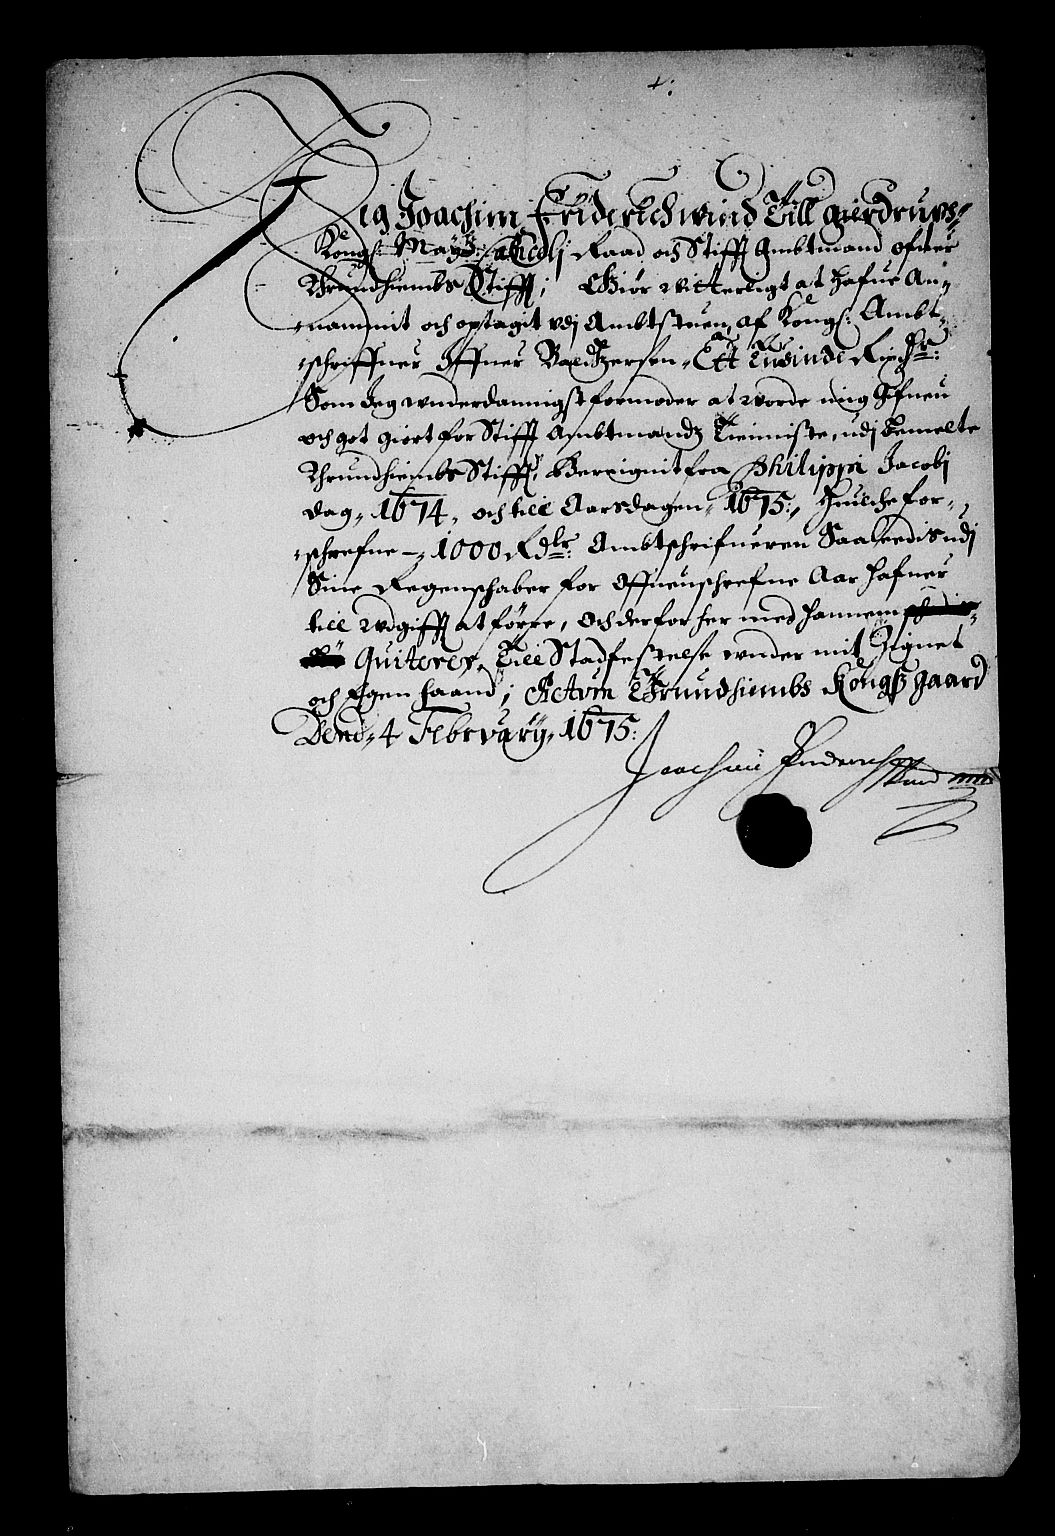 4:
Jeg Joachim Friderich wind Till gierdrup
Kongl: Mayts: Raad och Stifft Ambtmand ofuer
Thrundhiembs Stifft; Giör witterligt at hafue An-
nammit och optagit udj Ambtstuen af Kongl: Ambt-
schriffuer Iffuer Baltzersen, Ett Tusinde Rixdr:
Som Jeg underdannigst formoder at worde mig gifuen
och got giort for Stifft Ambtmandz Tienniste, udj bemelte
Thrundhiembs Stifft, Bereignit fra Philippi Jacobj
dag, 1674, och till Aarsdagen, 1675:, Huilche for-
schrefne 1000 Rdlr: Ambtschrifueren Saaledis udj
Sine Regenschaber for Offuenschrefne Aar hafuer
till udgifft at føre, Och derfor her med hannem
Quiterer, Till Stadfestelse under mit Zignet
och Egen haand; Actum Thrundhiembs Kongsgaard
Dend, 4 February, 1675:
Joachim Friderich Vind